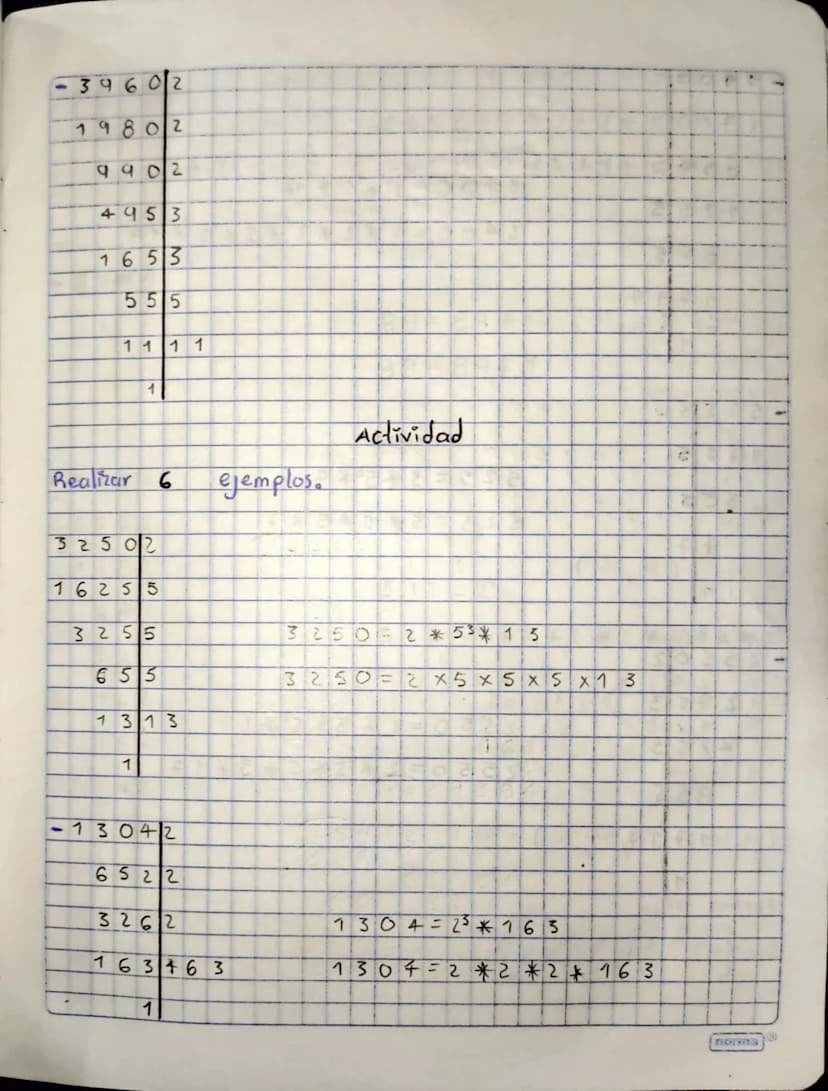 - 3 9 6 0 | 2
1 9 8 0 | 2
9 9 0 | 2
4 9 5 | 3
1 6 5 | 3
5 5 | 5
1 1 | 1 1
1 |
Actividad
Realizar 6 ejemplos.
3 2 5 0 | 2
1 6 2 5 | 5
3 2 5 | 5 3 2 5 0 = 2 * 5³ * 1 3
6 5 | 5 3 2 5 0 = 2 × 5 × 5 × 5 × 1 3
1 3 | 1 3
1 |
- 1 3 0 4 | 2
6 5 2 | 2
3 2 6 | 2 1 3 0 4 = 2³ * 1 6 3
1 6 3 | 1 6 3 1 3 0 4 = 2 * 2 * 2 * 1 6 3
1 |
norma